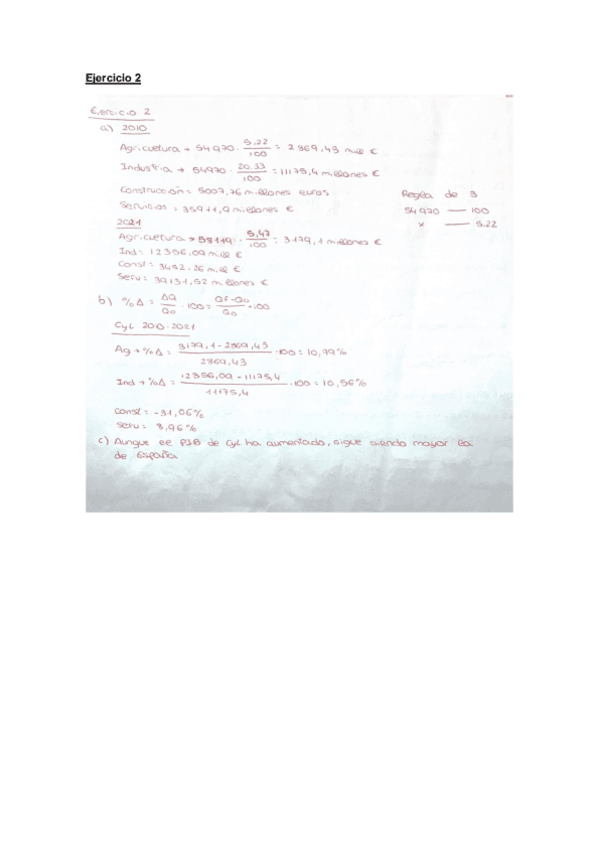 Ejercicio 2
Ejercicio 2
a) 2010
Agricultura → 54970 · 5,22/100 = 2869,43 mill €
Industria → 54970 · 20,33/100 = 11175,4 millones €
Construcción = 5007,76 millones euros
Regla de 3
Servicios = 35911,9 millones €
54970 — 100
x — 5,22
2021
Agricultura → 58119 · 5,47/100 = 3179,1 millones €
Ind = 12356,09 mill €
Const = 3452,26 mill €
Serv = 39131,52 millones €
b) %Δ = ΔQ/Q0 · 100 = Qf-Q0/Q0 · 100
CyL 2010-2021
Ag → %Δ = 3179,1 - 2869,43/2869,43 · 100 = 10,79%
Ind → %Δ = 12356,09 - 11175,4/11175,4 · 100 = 10,56%
Const = -31,06%
Serv = 8,96%
c) Aunque el PIB de CyL ha aumentado, sigue siendo mayor la
de España